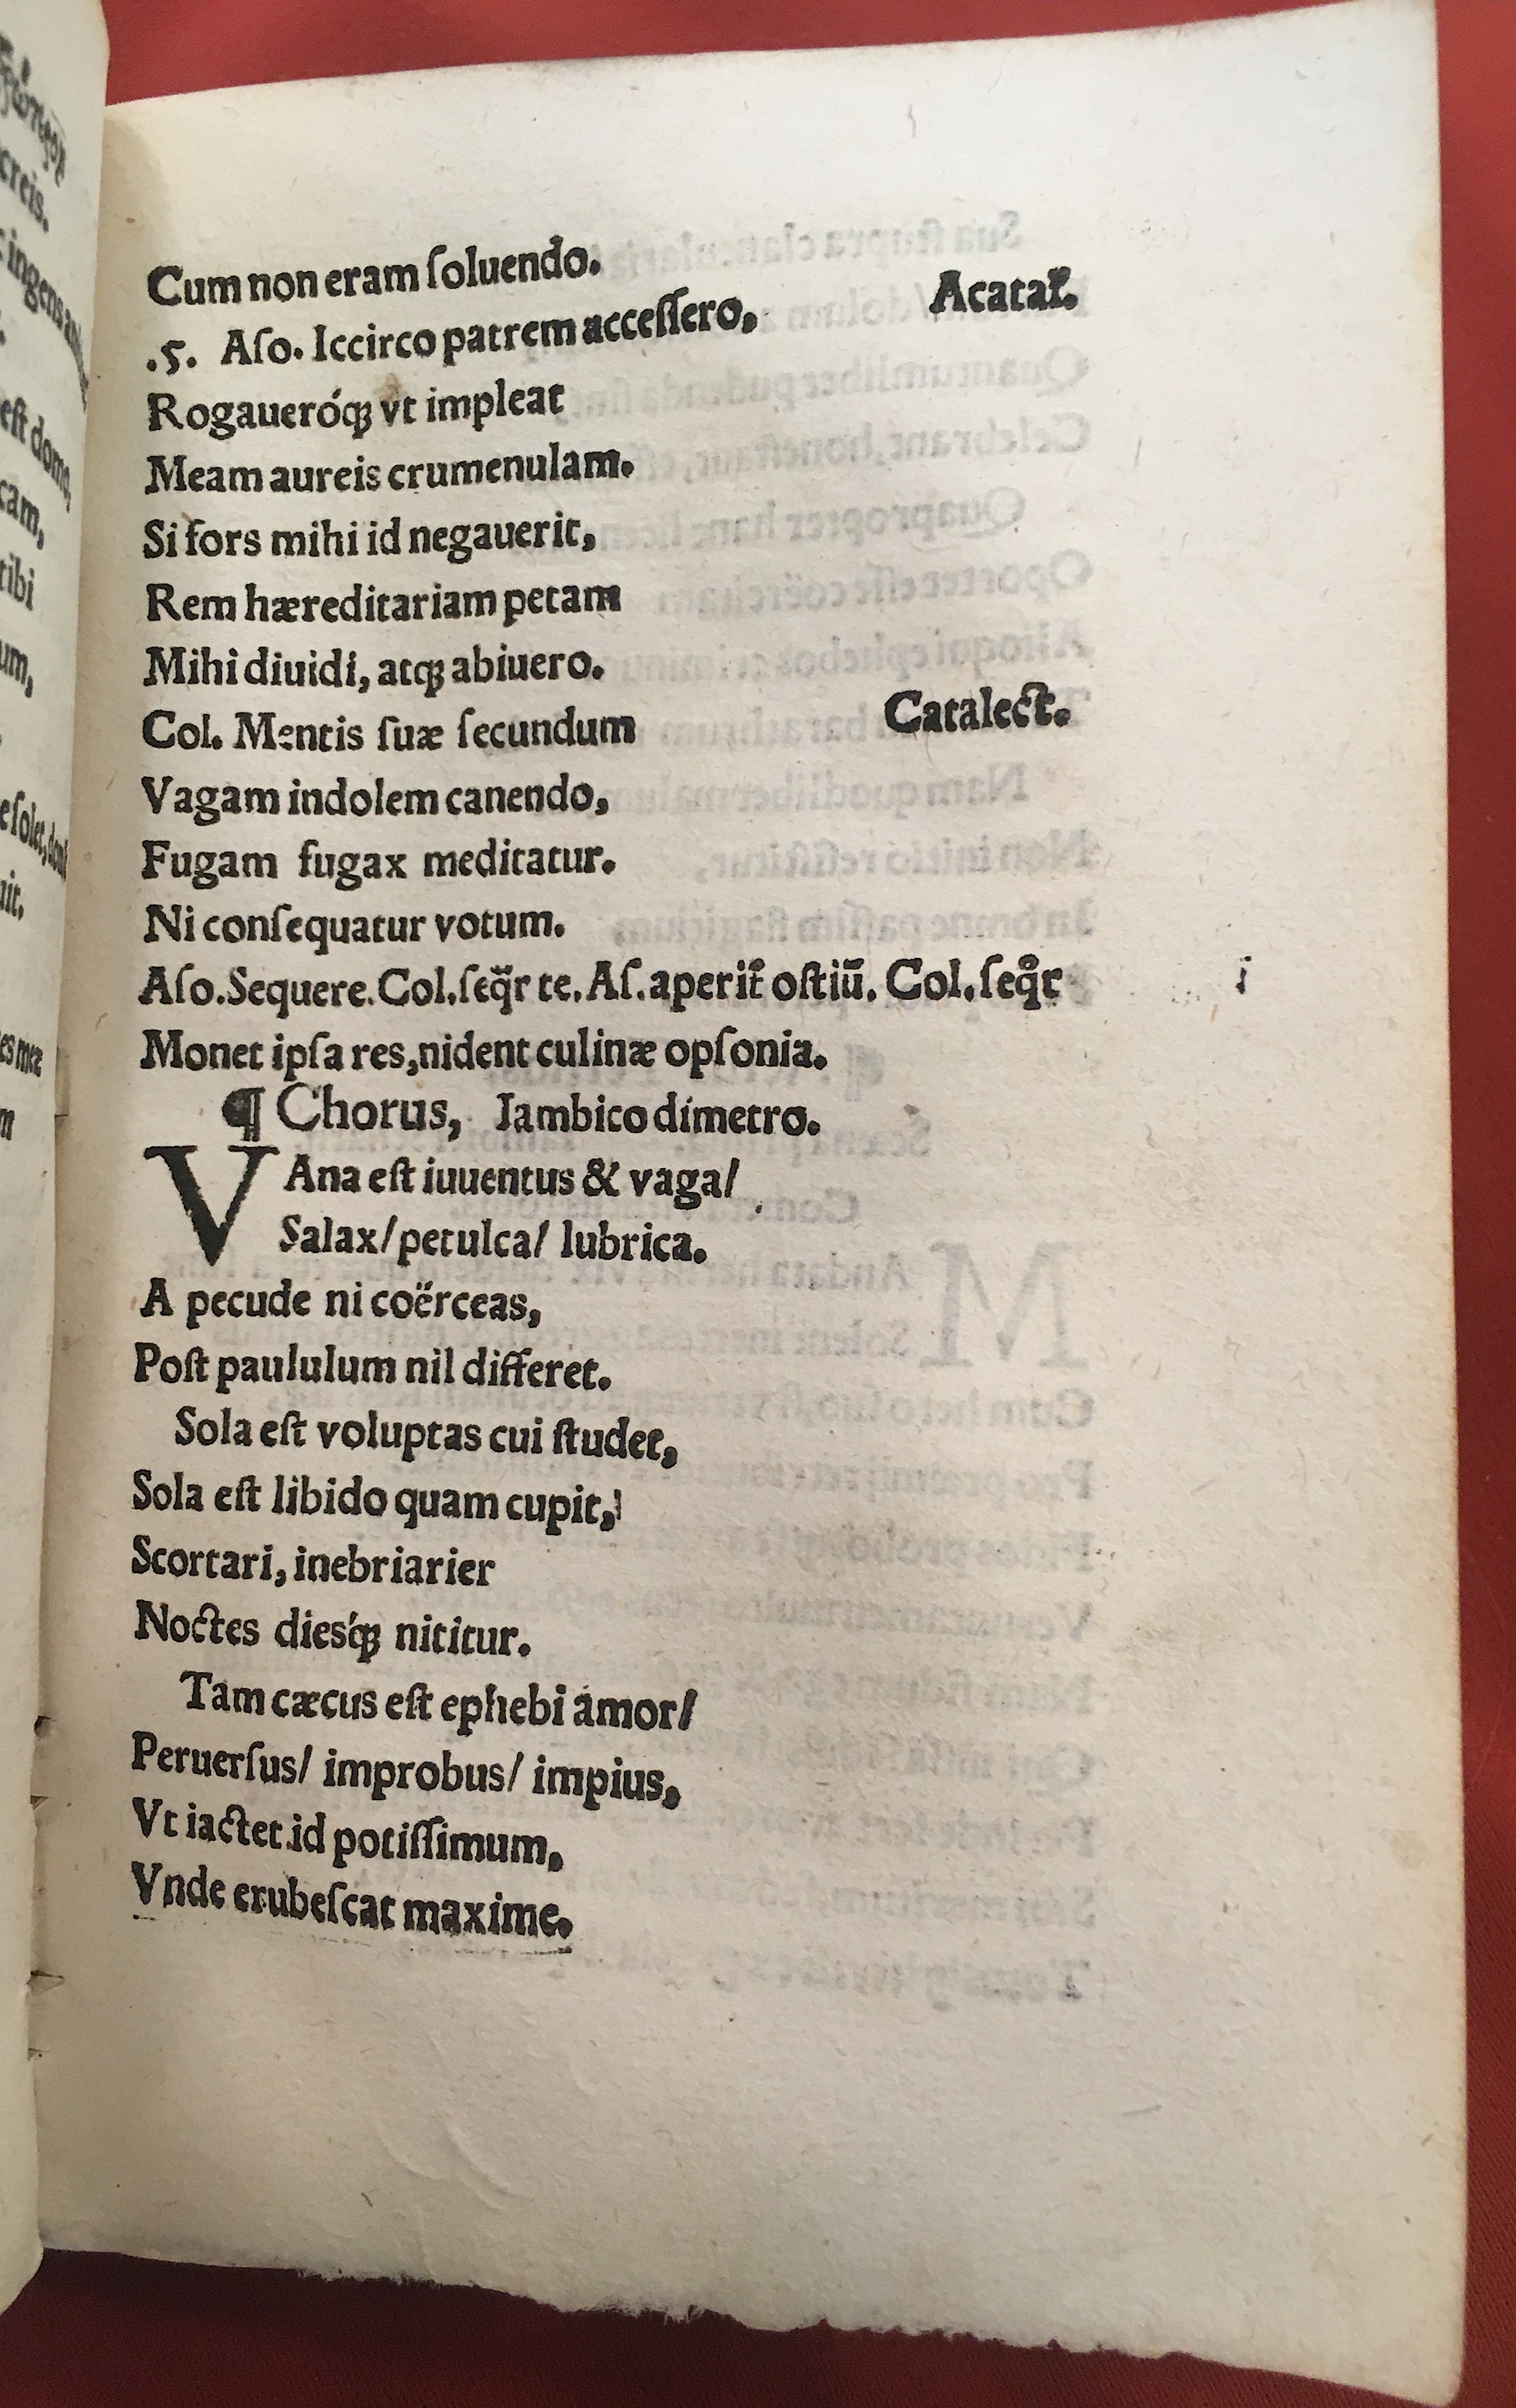 Cum non eram ſoluendo.
.5. Aſo. Iccirco patrem acceſſero, Acatal.
Rogaueróq; vt impleat
Meam aureis crumenulam.
Si fors mihi id negauerit,
Rem hæreditariam petam
Mihi diuidi, atq; abiuero.
Col. Mentis ſuæ ſecundum Catalect.
Vagam indolem canendo,
Fugam fugax meditatur.
Ni conſequatur votum.
Aſo. Sequere. Col. ſeq̃r te. Aſ. aperit̃ oſtiũ. Col. ſeqr̃
Monet ipſa res, nident culinæ opſonia.
¶ Chorus, Iambico dimetro.
VAna eſt iuuentus & vaga/
Salax/ petulca/ lubrica.
A pecude ni coërceas,
Poſt paululum nil differet.
Sola eſt voluptas cui ſtudet,
Sola eſt libido quam cupit,
Scortari, inebriarier
Noctes dieśq; nititur.
Tam cæcus eſt ephebi amor/
Peruerſus/ improbus/ impius,
Vt iactet id potiſſimum,
Vnde erubeſcat maxime.